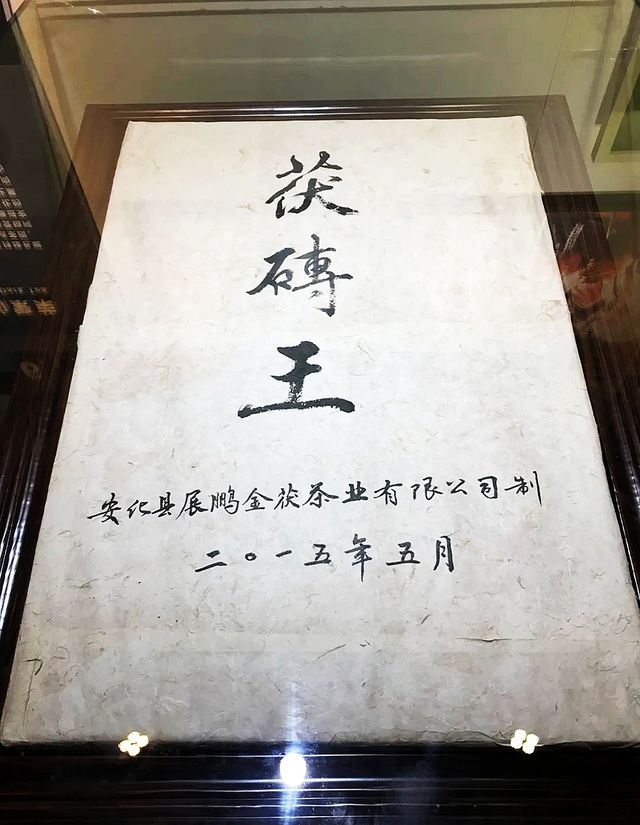 茯
磚
王
安化县展鹏金茯茶业有限公司制
二〇一五年五月